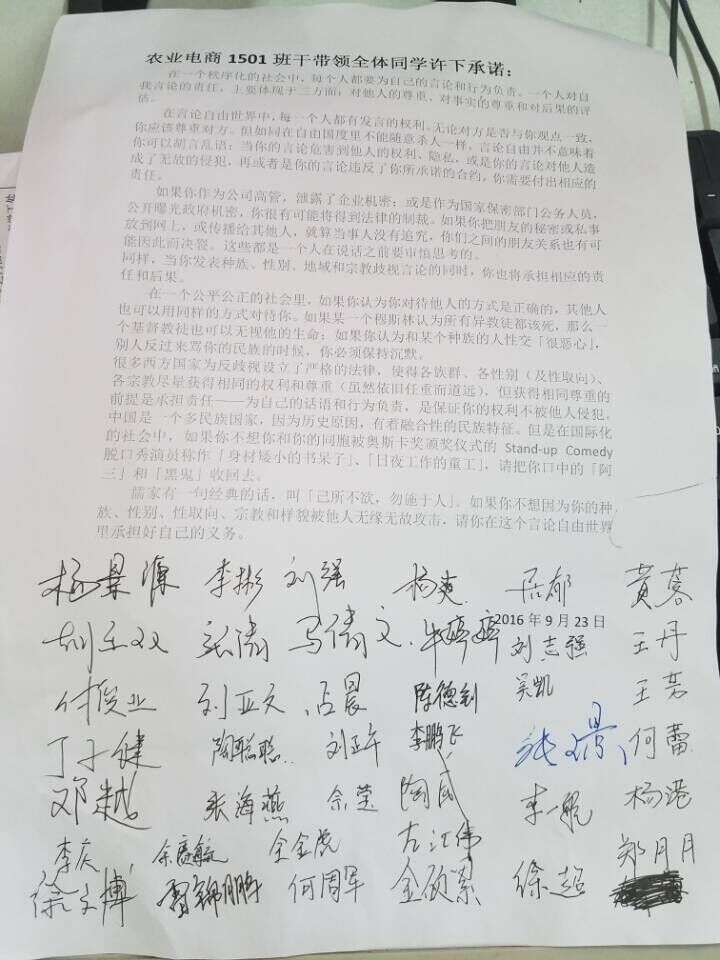 农业电商 1501 班干带领全体同学许下承诺：
在一个秩序化的社会中，每个人都要为自己的言论和行为负责。一个人对自
我言论的责任，主要体现于三方面：对他人的尊重、对事实的尊重和对后果的评
估。
在言论自由世界中，每一个人都有发言的权利。无论对方是否与你观点一致，
你应该尊重对方。但如同在自由国度里不能随意杀人一样，言论自由并不意味着
你可以胡言乱语：当你的言论危害到他人的权利、隐私，或是你的言论对他人造
成了无故的侵犯，再或者是你的言论违反了你所承诺的合约，你需要付出相应的
责任。
如果你作为公司高管，泄露了企业机密；或是作为国家保密部门公务人员，
公开曝光政府机密，你很有可能将得到法律的制裁。如果你把朋友的秘密或私事
放到网上，或传播给其他人，就算当事人没有追究，你们之间的朋友关系也有可
能因此而决裂。这些都是一个人在说话之前要审慎思考的。
同样，当你发表种族、性别、地域和宗教歧视言论的同时，你也将承担相应的责
任和后果。
在一个公平公正的社会里，如果你认为你对待他人的方式是正确的，其他人
也可以用同样的方式对待你。如果某一个穆斯林认为所有异教徒都该死，那么一
个基督教徒也可以无视他的生命；如果你认为和某个种族的人性交「很恶心」，
别人反过来骂你的民族的时候，你必须保持沉默。
很多西方国家为反歧视设立了严格的法律，使得各族群、各性别（及性取向）、
各宗教尽量获得相同的权利和尊重（虽然依旧任重而道远），但获得相同尊重的
前提是承担责任——为自己的话语和行为负责，是保证你的权利不被他人侵犯。
中国是一个多民族国家，因为历史原因，有着融合性的民族特征。但是在国际化
的社会中，如果你不想你和你的同胞被奥斯卡奖颁奖仪式的 Stand-up Comedy
脱口秀演员称作「身材矮小的书呆子」、「日夜工作的童工」，请把你口中的「阿
三」和「黑鬼」收回去。
儒家有一句经典的话，叫「己所不欲，勿施于人」。如果你不想因为你的种
族、性别、性取向、宗教和样貌被他人无缘无故攻击，请你在这个言论自由世界
里承担好自己的义务。
李彬 刘强 杨爽 居郁 黄蓉
2016 年 9 月 23 日
张倩 马倩文 牛婷婷 刘志强 王丹
付俊业 刘亚文 占晨 陈德钊 吴凯 王芳
丁子健 陶聪聪 刘正午 李鹏飞 何蕾
邓越 张海燕 余莹 陶成 李一帆 杨港
李庆 全金虎 古江伟 郑月月
徐文博 贾锦鹏 何周军 徐超